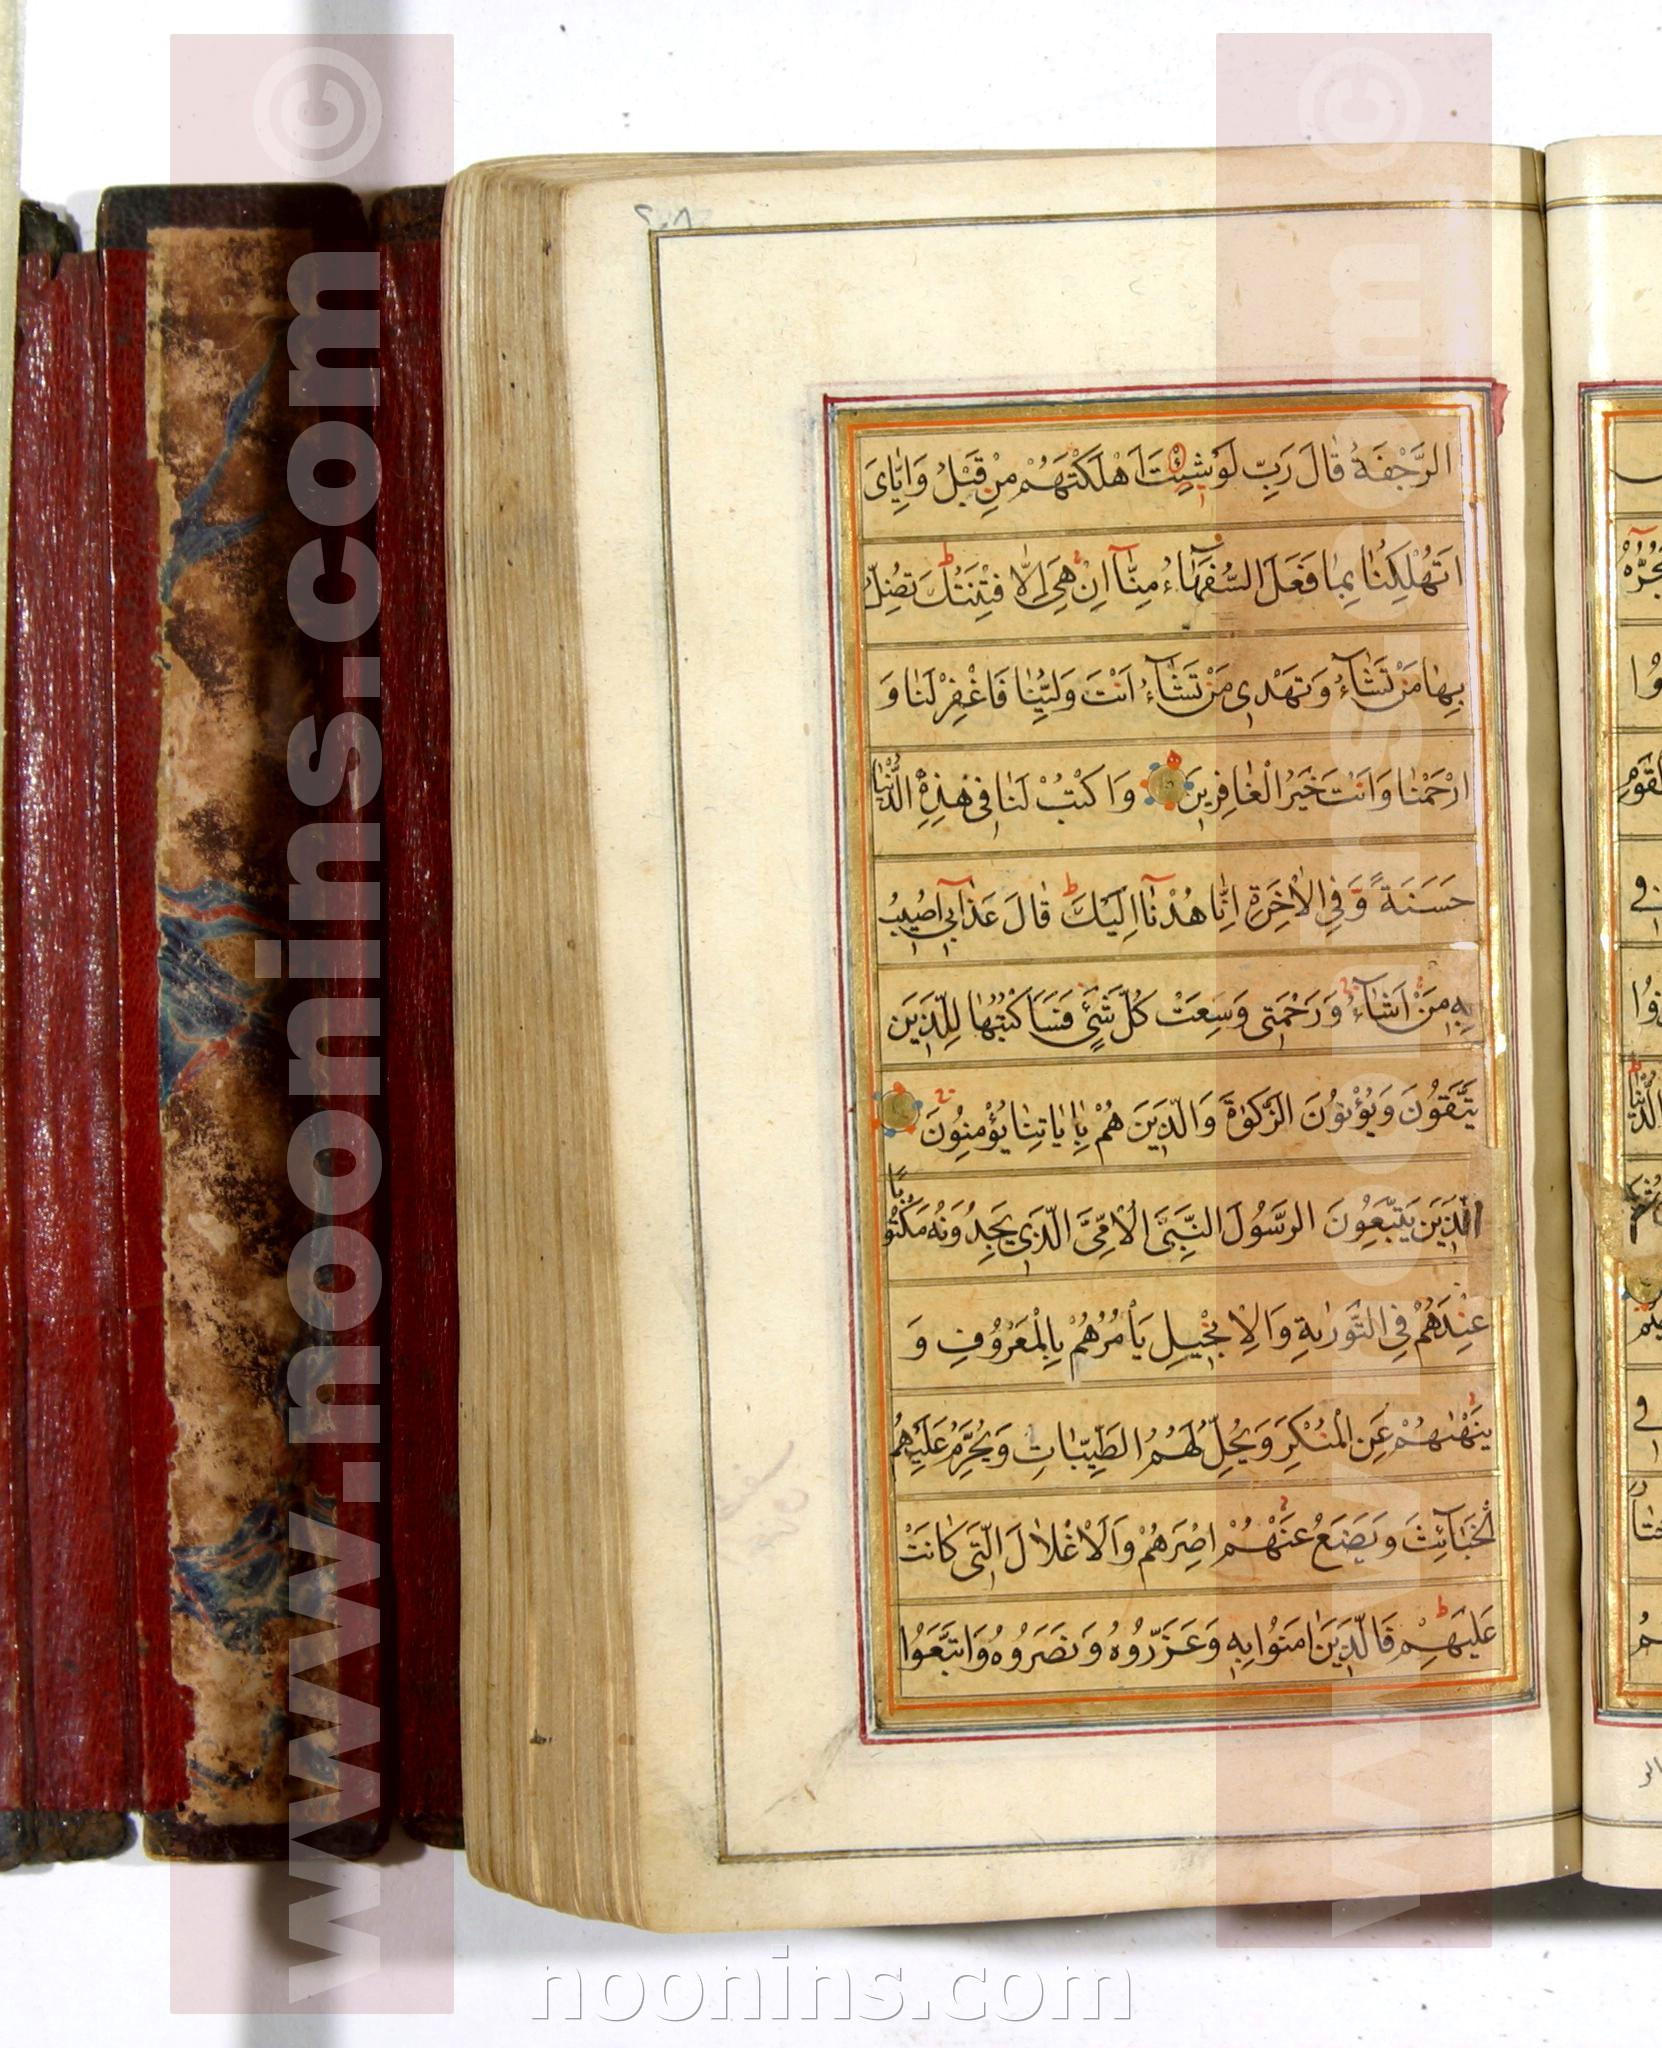 ٢٠٨
الرَّجْفَةُ قَالَ رَبِّ لَوْ شِئْتَ اَهْلَكْتَهُمْ مِنْ قَبْلُ وَاِيَّايَ
اَتُهْلِكُنَا بِمَا فَعَلَ السُّفَهَآءُ مِنَّآ اِنْ هِيَ اِلَّا فِتْنَتُكَ تُضِلُّ
بِهَا مَنْ تَشَآءُ وَتَهْدِي مَنْ تَشَآءُ اَنْتَ وَلِيُّنَا فَاغْفِرْ لَنَا وَ
ارْحَمْنَا وَاَنْتَ خَيْرُ الْغَافِرِينَ وَاكْتُبْ لَنَا فِي هٰذِهِ الدُّنْيَا
حَسَنَةً وَفِي الْاٰخِرَةِ اِنَّا هُدْنَآ اِلَيْكَ قَالَ عَذَابِيٓ اُصِيبُ
بِهِ مَنْ اَشَآءُ وَرَحْمَتِي وَسِعَتْ كُلَّ شَيْءٍ فَسَاَكْتُبُهَا لِلَّذِينَ
يَتَّقُونَ وَيُؤْتُونَ الزَّكٰوةَ وَالَّذِينَ هُمْ بِاٰيَاتِنَا يُؤْمِنُونَ
اَلَّذِينَ يَتَّبِعُونَ الرَّسُولَ النَّبِيَّ الْاُمِّيَّ الَّذِي يَجِدُونَهُ مَكْتُوبًا
عِنْدَهُمْ فِي التَّوْرٰيةِ وَالْاِنْجِيلِ يَاْمُرُهُمْ بِالْمَعْرُوفِ وَ
يَنْهٰيهُمْ عَنِ الْمُنْكَرِ وَيُحِلُّ لَهُمُ الطَّيِّبَاتِ وَيُحَرِّمُ عَلَيْهِمُ
الْخَبَآئِثَ وَيَضَعُ عَنْهُمْ اِصْرَهُمْ وَالْاَغْلَالَ الَّتِي كَانَتْ
عَلَيْهِمْ فَالَّذِينَ اٰمَنُوا بِهِ وَعَزَّرُوهُ وَنَصَرُوهُ وَاتَّبَعُوا
www.noonins.com ©
www.noonins.com ©
noonins.com